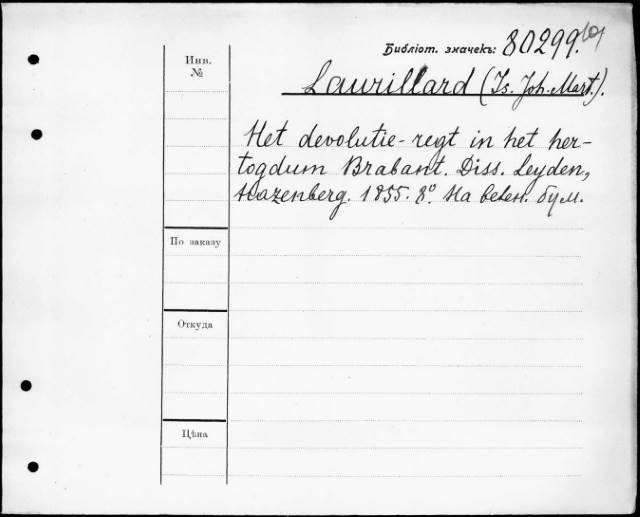 Библіот. значекъ: 80299.
Инв.
№
Laurillard (Is. Joh. Mart.).
Het devolutie-regt in het her-
togdum Brabant. Diss. Leyden,
Hazenberg. 1855. 8º. На велен. бум.
По заказу
Откуда
Цѣна